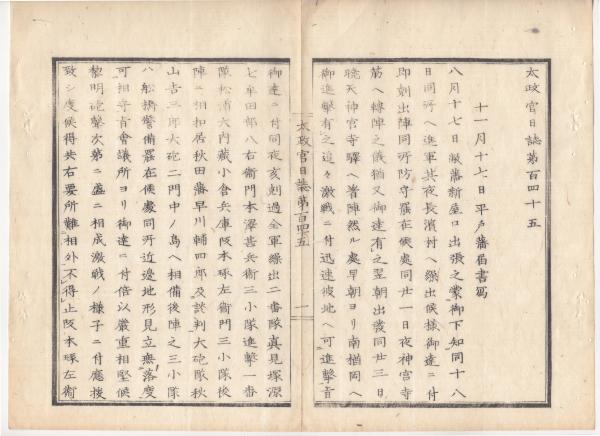 太政官日誌第百四十五
十一月十七日平戸藩届書写
八月十七日藩新屋口出張之蒙御下知同十八
日同所へ進軍其夜長濱村へ繰出候様御達ニ付
即刻出陣同所防守罷在候處同廿一日夜神宮寺
苅へ轉陣之儀猶又御達有之翌朝出発同廿三日
暁天神宮寺驛ヘ着陣然ル處早朝ヨリ南楢岡ヘ
御進撃有之追々激戦ニ付迅速彼地ヘ可進撃旨
太政官日誌第百四十五
一
御達ニ付同夜亥刻過全軍繰出二番隊真見塚源
七牟田部八右衛門本澤甚兵衛三小隊進撃一番
隊松浦大内蔵小倉兵庫阪本琢左衛門三小隊後
陣ニ相扣居秋田藩早川輔四郎及談判大砲隊秋
山吉三郎大砲二門中ノ島ヘ相備後陣之三小隊
ハ船橋警備罷在候處同所近邊地形見立無落度
可相守旨會議所ヨリ御達ニ付倍以厳重相堅候
黎明砲撃次第ニ盛ニ相成激戦ノ様子ニ付應援
致シ度候得共右要所難相外不得止阪本琢左衛